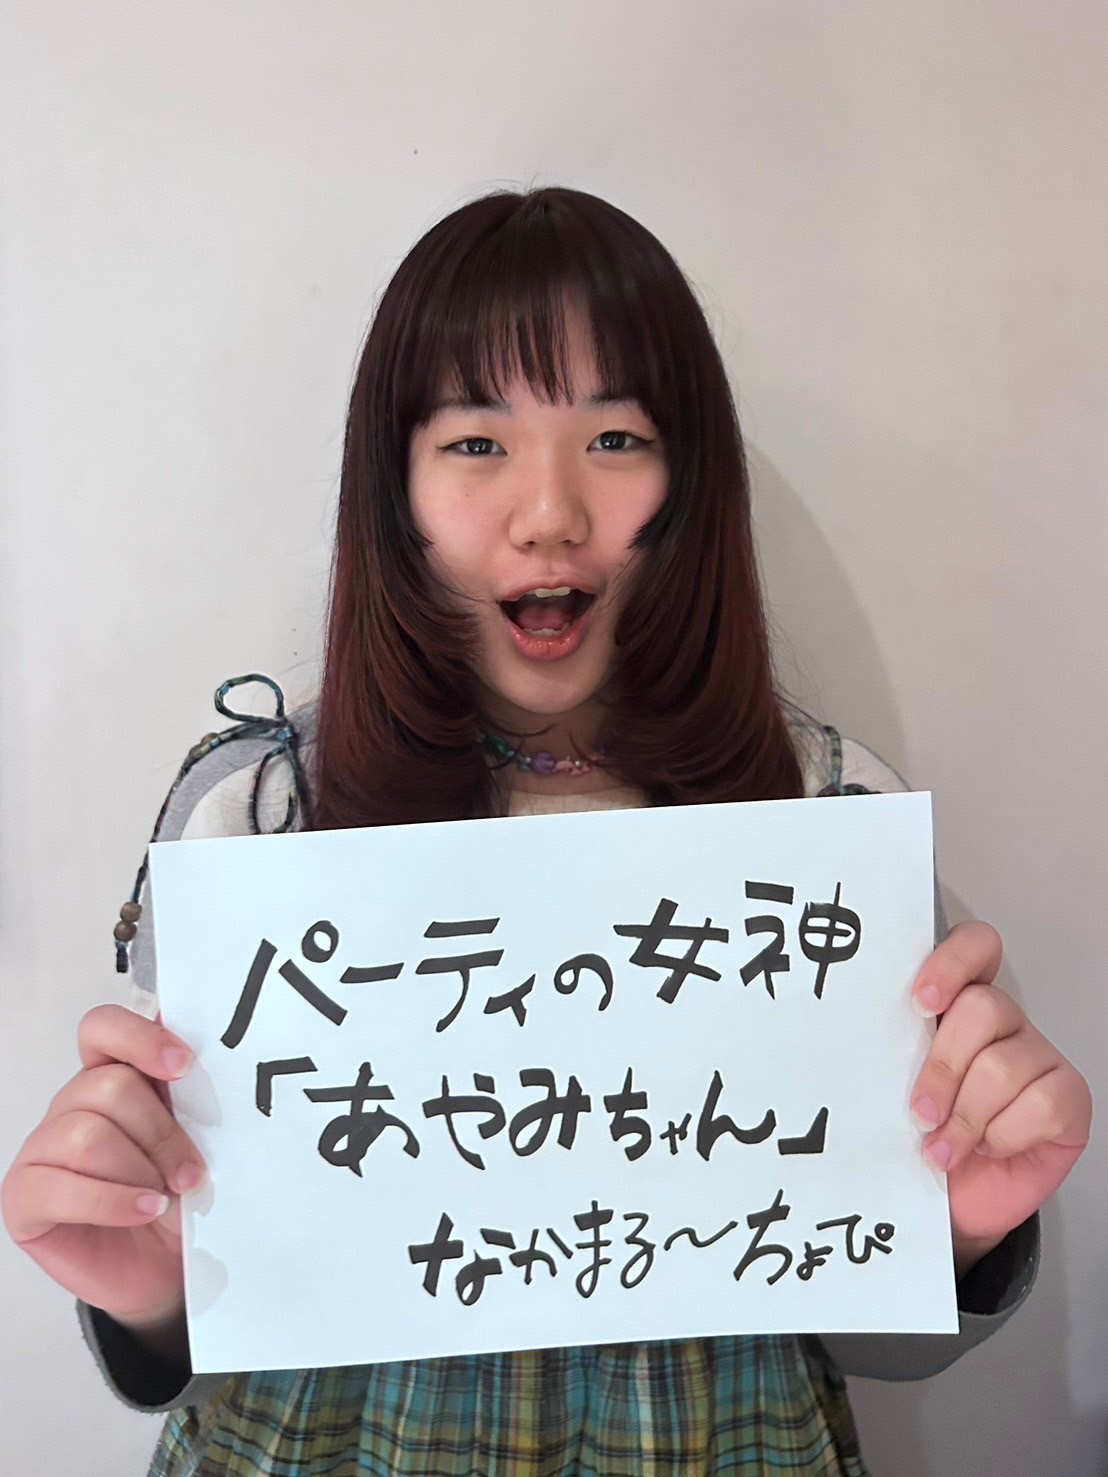 パーティの女神
「あやみちゃん」
なかまる〜ちょぴ